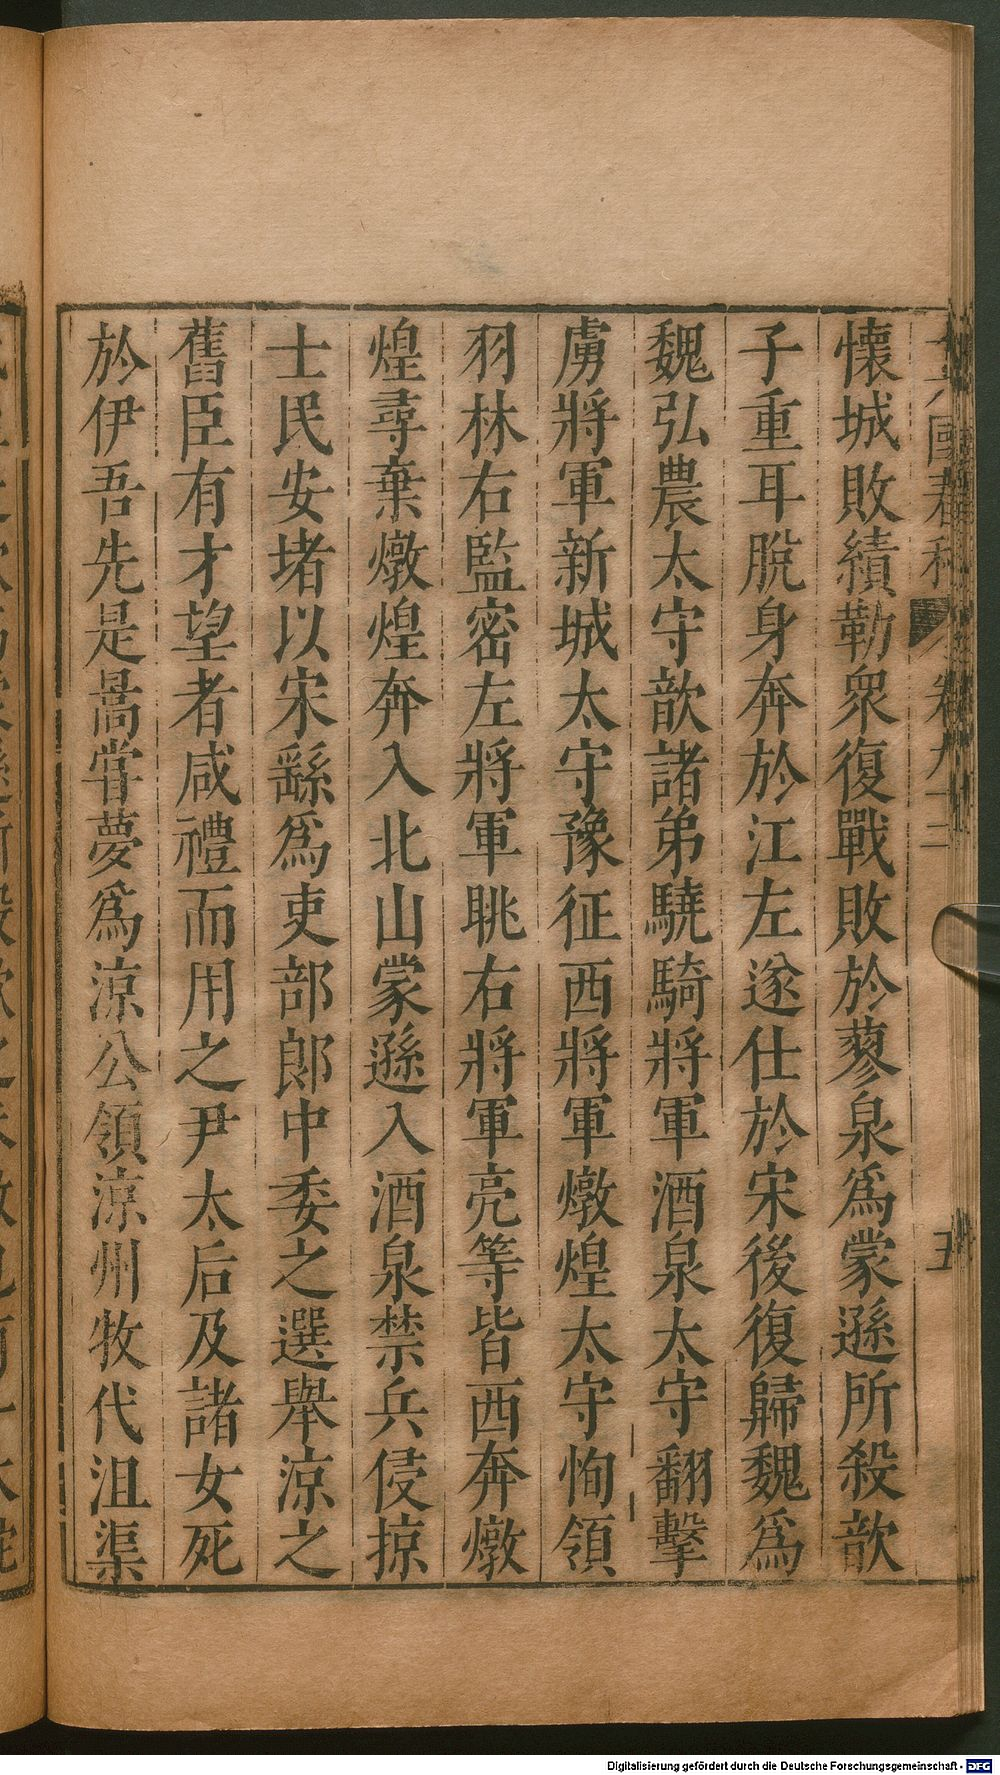 十六國春秋 卷九十三 五
懷城敗績勒衆復戰敗於蓼泉爲蒙遜所殺歆
子重耳脫身奔於江左遂仕於宋後復歸魏爲
魏弘農太守歆諸弟驍騎將軍酒泉太守翻擊
虜將軍新城太守豫征西將軍燉煌太守恂領
羽林右監密左將軍眺右將軍亮等皆西奔燉
煌尋棄燉煌奔入北山蒙遜入酒泉禁兵侵掠
士民安堵以宋繇爲吏部郎中委之選舉涼之
舊臣有才望者咸禮而用之尹太后及諸女死
於伊吾先是暠嘗夢爲涼公領涼州牧代沮渠
Digitalisierung gefördert durch die Deutsche Forschungsgemeinschaft - DFG